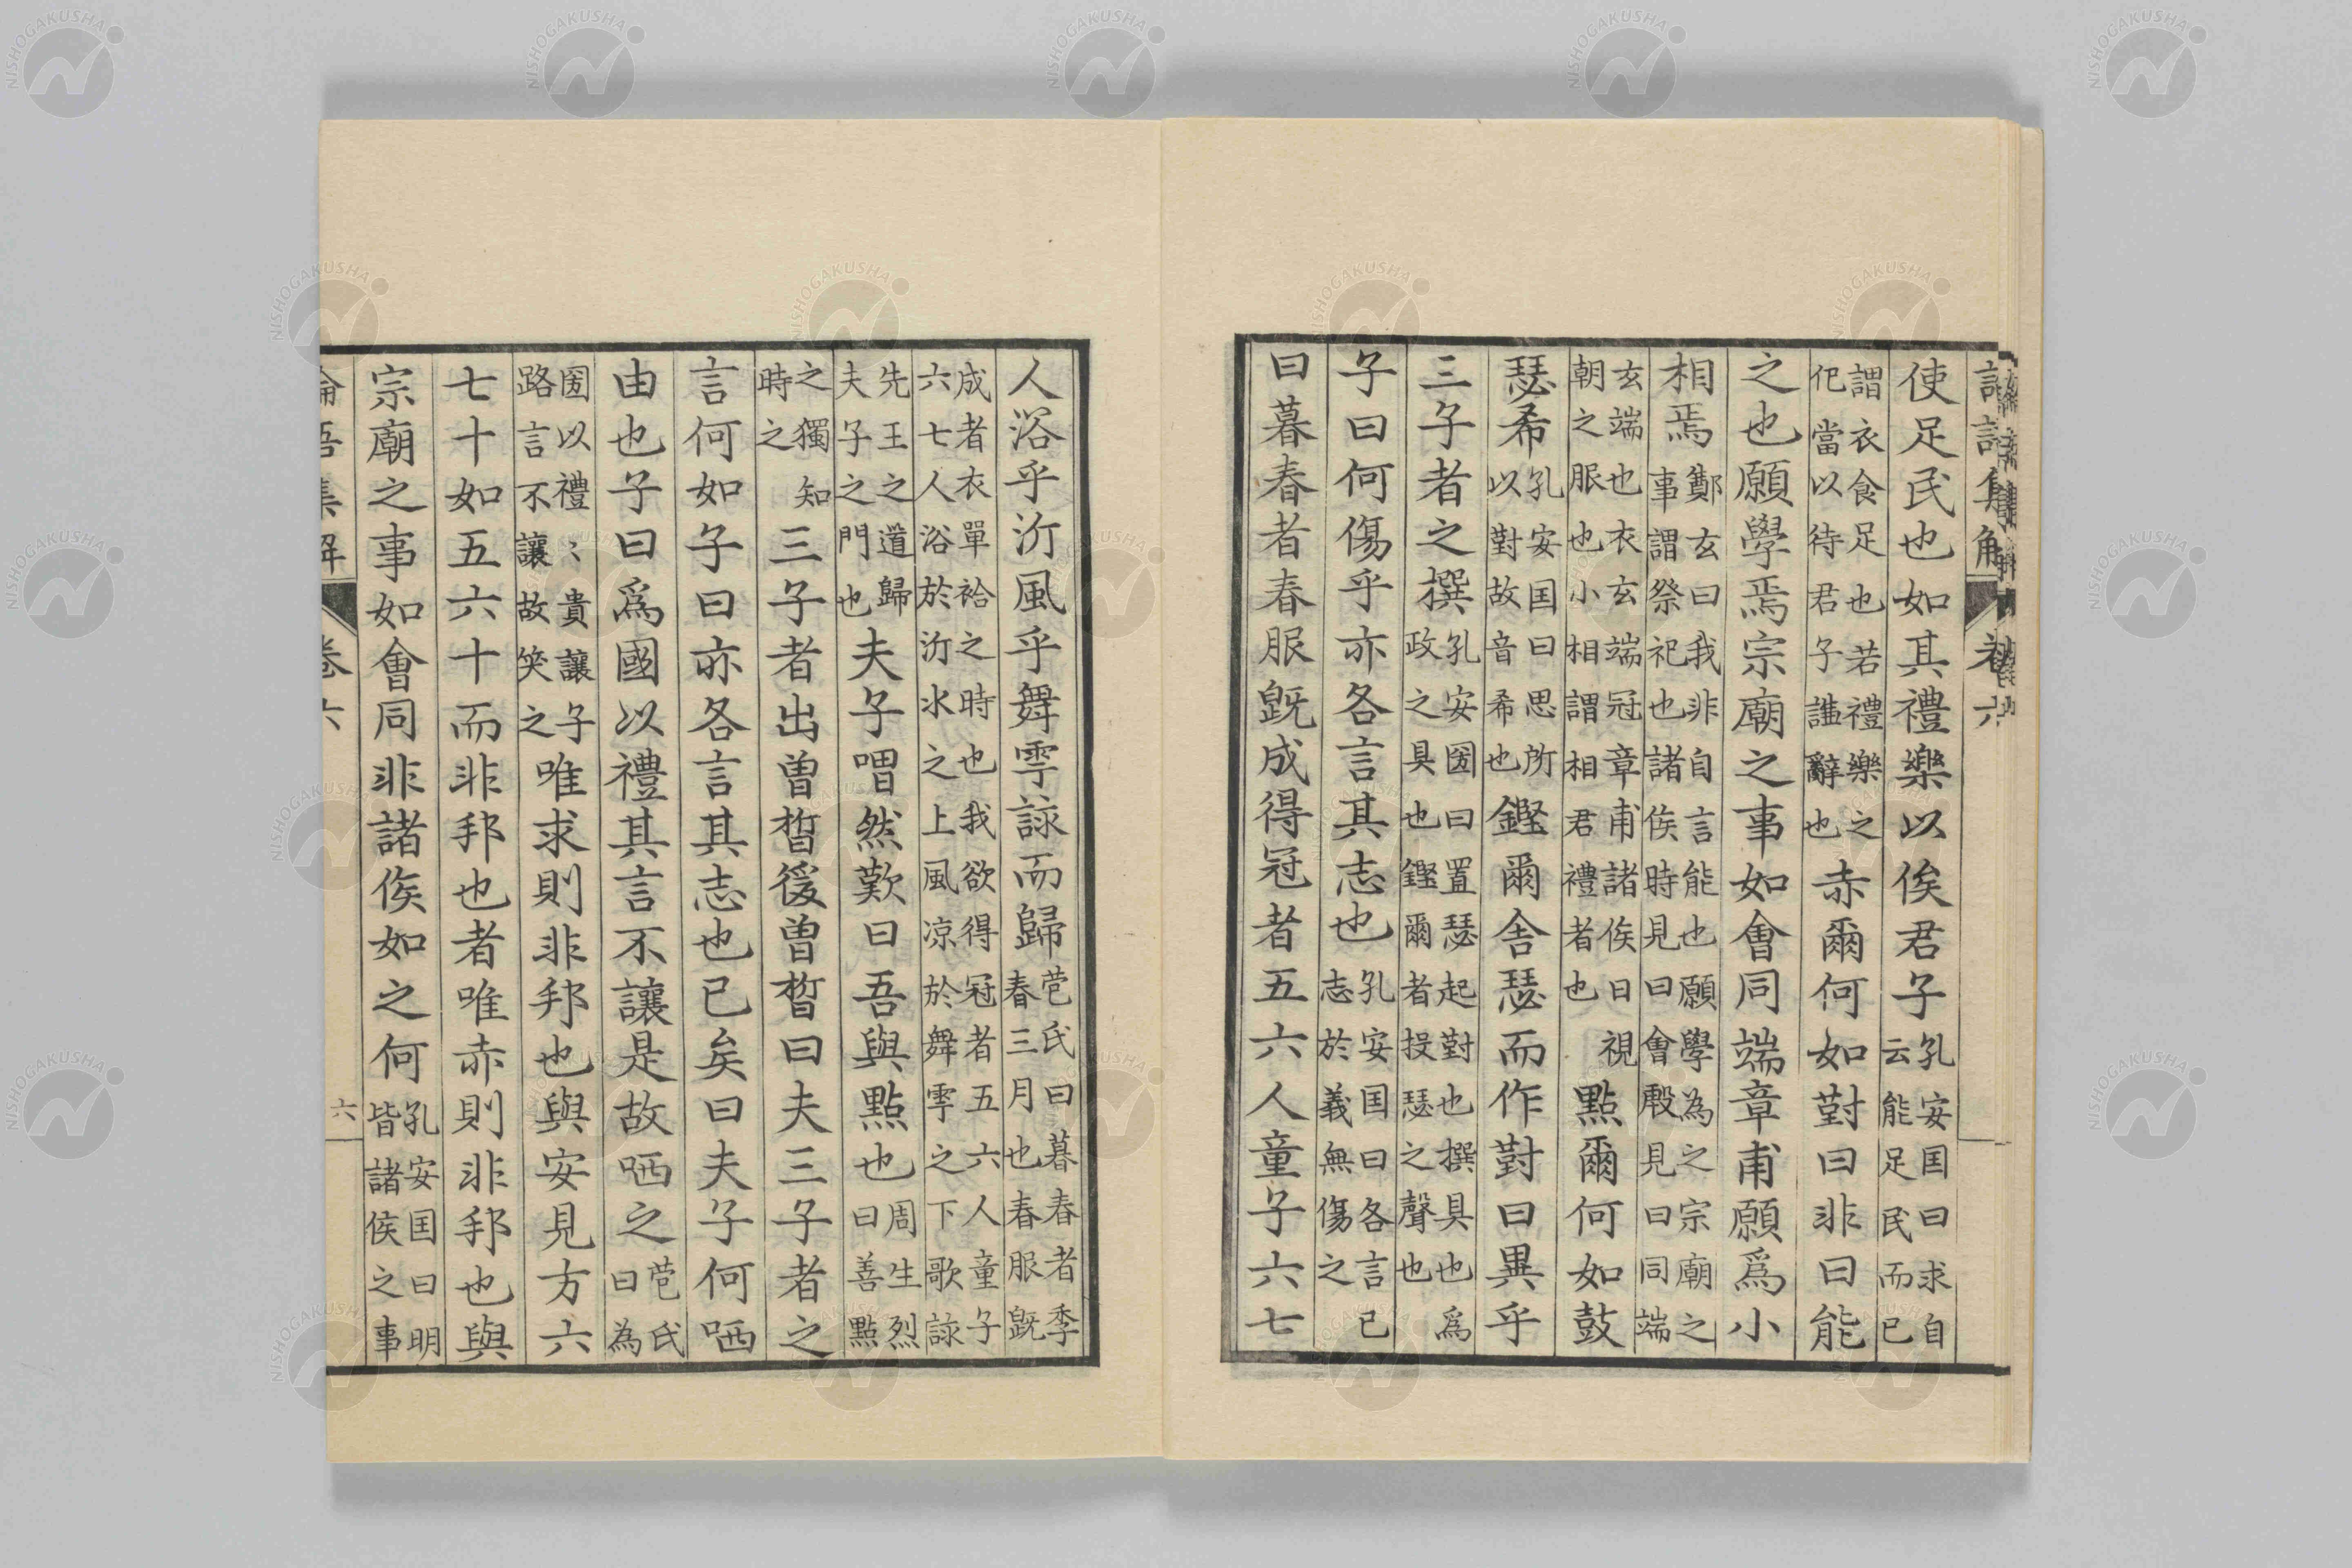 使足民也如其禮樂以俟君子孔安国曰求自云能足民而已
謂衣食足也若禮樂之化當以待君子謙辭也赤爾何如對曰非曰能
之也願學焉宗廟之事如會同端章甫願爲小
相焉鄭玄曰我非自言能也願學為之宗廟之事謂祭祀也諸侯時見曰會殷見曰同端
玄端也衣玄端冠章甫諸侯日視朝之服也小相謂相君禮者也點爾何如鼓
瑟希孔安国曰思所以對故音希也鏗爾舍瑟而作對曰異乎
三子者之撰孔安圀曰置瑟起對也撰具也爲政之具也鏗爾者投瑟之聲也
子曰何傷乎亦各言其志也孔安国曰各言己志於義無傷之
曰暮春者春服既成得冠者五六人童子六七
人浴乎沂風乎舞雩詠而歸苞氏曰暮春者季春三月也春服既
成者衣單袷之時也我欲得冠者五六人童子六七人浴於沂水之上風凉於舞雩之下歌詠
先王之道歸夫子之門也夫子喟然歎曰吾與點也周生烈曰善點
之獨知時之三子者出曽晳後曽晳曰夫三子者之
言何如子曰亦各言其志也已矣曰夫子何哂
由也子曰爲國以禮其言不讓是故哂之苞氏曰為
圀以禮〻貴讓子路言不讓故笑之唯求則非邦也與安見方六
七十如五六十而非邦也者唯赤則非邦也與
宗廟之事如會同非諸侯如之何孔安国曰明皆諸侯之事
論語集解 卷六 六
NISHOGAKUSHA